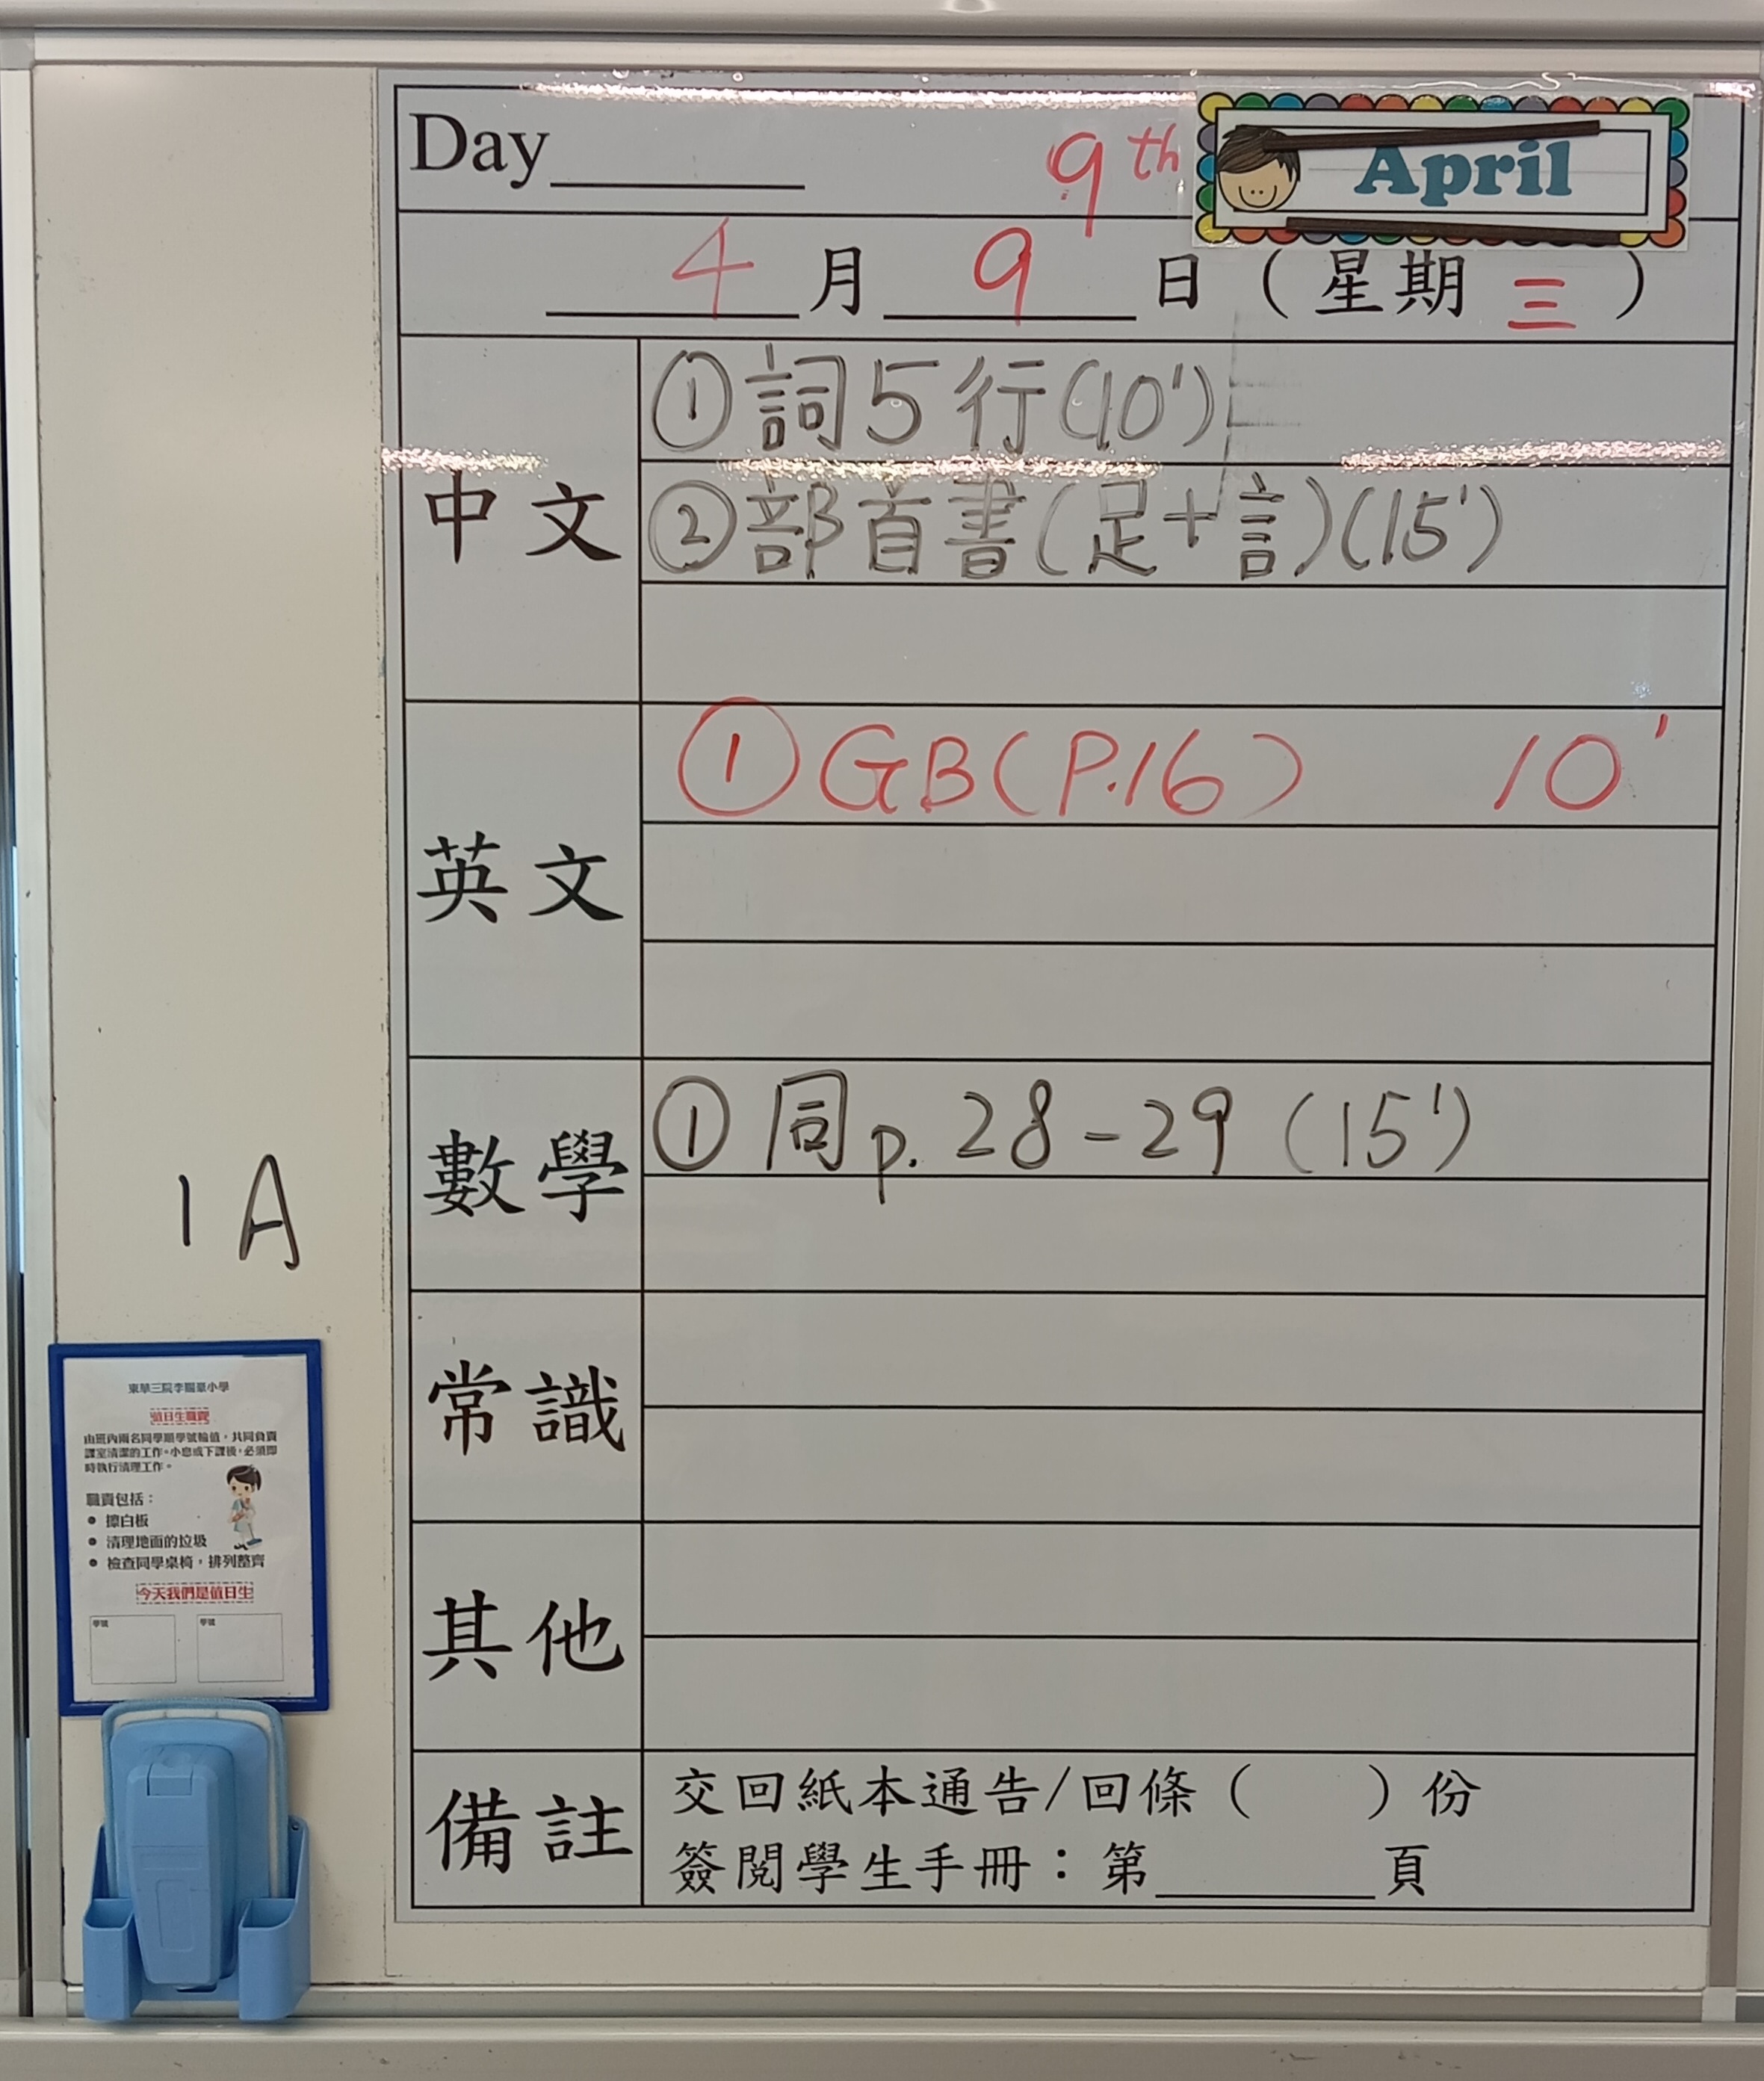 Day
9th April
4月9日（星期三）
中文
①詞5行(10')
②部首書(足+言)(15')
英文
①GB(P.16) 10'
數學
①同p.28-29(15')
常識
其他
備註
交回紙本通告/回條（ ）份
簽閱學生手冊：第______頁
1A
值日生職責
由班內兩名同學順學號輪值，共同負責
課室清潔的工作。小息或下課後，必須即
時執行清理工作。
職責包括：
• 擦白板
• 清理地面的垃圾
• 檢查同學桌椅，排列整齊
今天我們是值日生
學號 學號